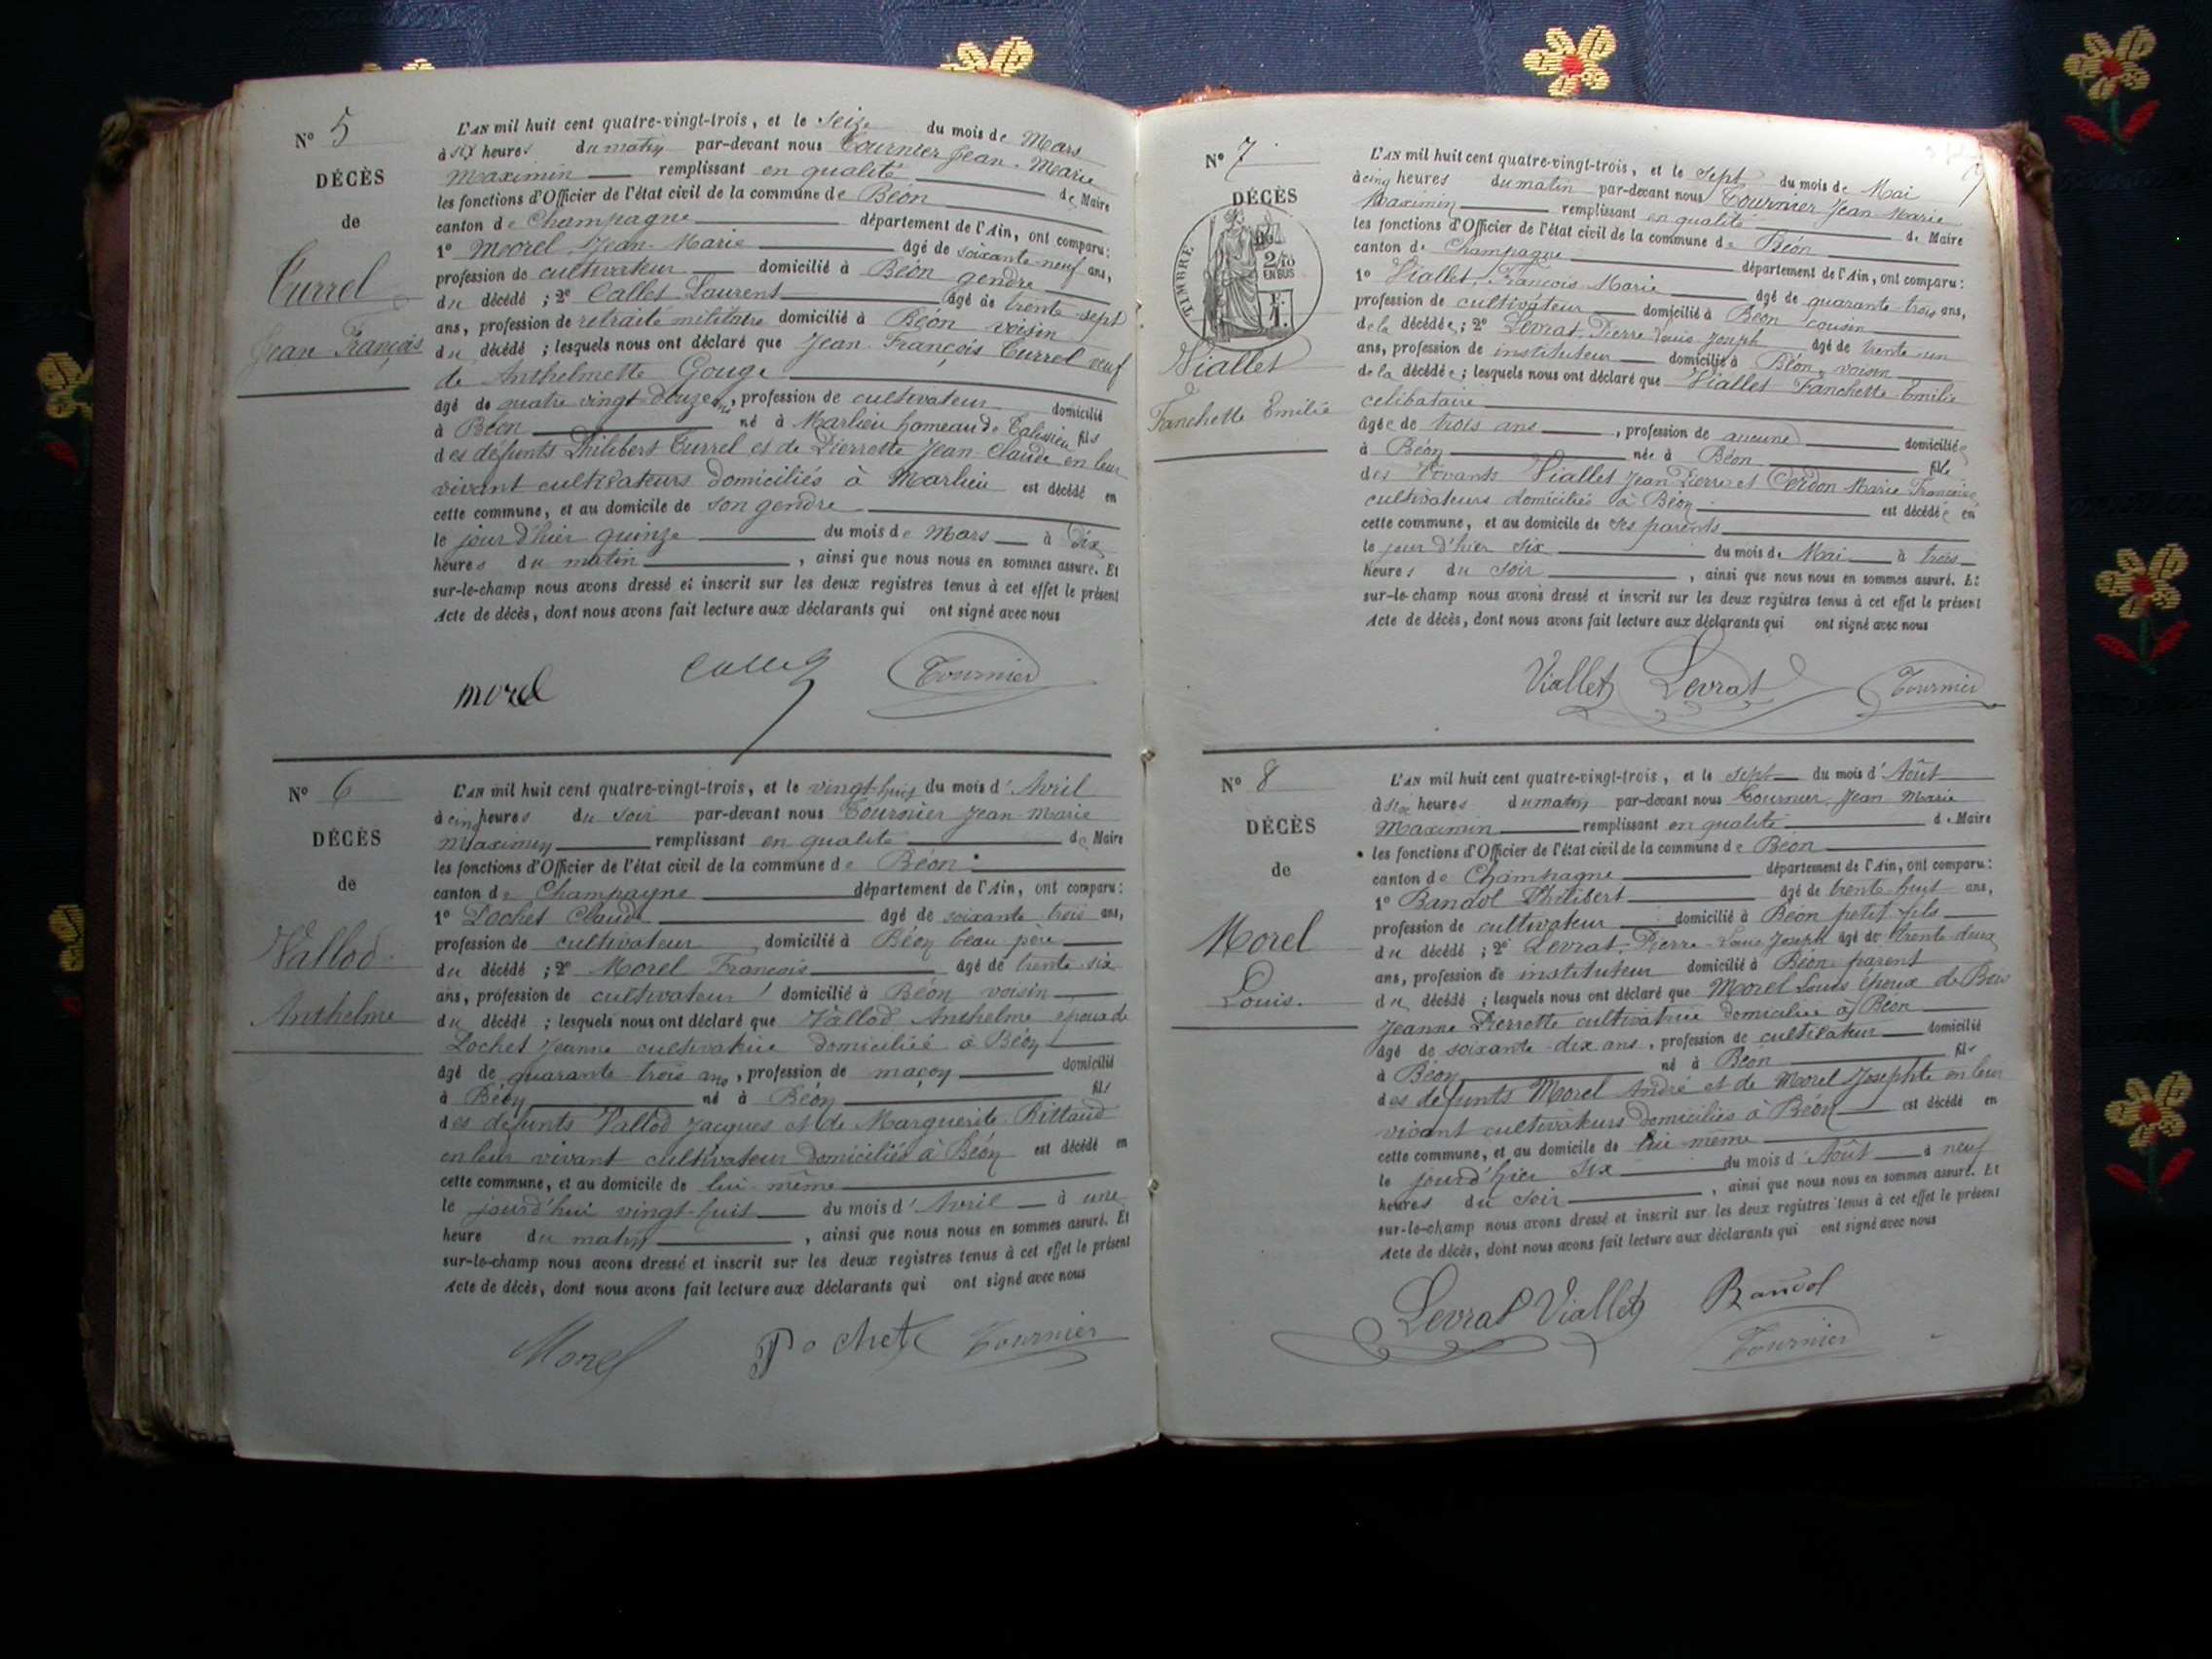 N° 5
DÉCÈS
de
Currel
Jean François
L'AN mil huit cent quatre-vingt-trois, et le seize du mois de Mars
à six heures du matin par-devant nous Tournier Jean-Marie
Maximin remplissant en qualité de Maire
les fonctions d'Officier de l'état civil de la commune de Béon
canton de Champagne département de l'Ain, ont comparu:
1° Morel Jean-Marie âgé de soixante-neuf ans,
profession de cultivateur domicilié à Béon gendre
du décédé ; 2° Callet Laurent âgé de trente-sept
ans, profession de retraité militaire domicilié à Béon voisin
du décédé ; lesquels nous ont déclaré que Jean-François Currel veuf
de Anthelmette Gouge
âgé de quatre vingt douze ans, profession de cultivateur domicilié
à Béon né à Marlieu hameau de Talissieu fils
des défunts Philibert Currel et de Pierrette Jean-Claude en leur
vivant cultivateurs domiciliés à Marlieu est décédé en
cette commune, et au domicile de son gendre
le jour d'hier quinze du mois de Mars à dix
heures du matin , ainsi que nous nous en sommes assuré. Et
sur-le-champ nous avons dressé et inscrit sur les deux registres tenus à cet effet le présent
Acte de décès, dont nous avons fait lecture aux déclarants qui ont signé avec nous
morel Callet Tournier
N° 6
DÉCÈS
de
Vallod
Anthelme
L'AN mil huit cent quatre-vingt-trois, et le vingt-huit du mois d'Avril
à cinq heures du soir par-devant nous Tournier Jean-Marie
Maximin remplissant en qualité de Maire
les fonctions d'Officier de l'état civil de la commune de Béon
canton de Champagne département de l'Ain, ont comparu:
1° Pochet Claude âgé de soixante trois ans,
profession de cultivateur domicilié à Béon beau-père
du décédé ; 2° Morel François âgé de trente-six
ans, profession de cultivateur domicilié à Béon voisin
du décédé ; lesquels nous ont déclaré que Vallod Anthelme époux de
Pochet Jeanne cultivatrice domiciliée à Béon
âgé de quarante-trois ans, profession de maçon domicilié
à Béon né à Béon fils
des défunts Vallod Jacques et de Marguerite Rittaud
en leur vivant cultivateur domiciliés à Béon est décédé en
cette commune, et au domicile de lui-même
le jourd'hui vingt-huit du mois d'Avril à une
heure du matin , ainsi que nous nous en sommes assuré. Et
sur-le-champ nous avons dressé et inscrit sur les deux registres tenus à cet effet le présent
Acte de décès, dont nous avons fait lecture aux déclarants qui ont signé avec nous
Morel Pochet Tournier
N° 7
DÉCÈS
TIMBRE
2/10
EN SUS
Viallet
Fanchette Emilie
L'AN mil huit cent quatre-vingt-trois, et le sept du mois de Mai
à cinq heures du matin par-devant nous Tournier Jean-Marie
Maximin remplissant en qualité de Maire
les fonctions d'Officier de l'état civil de la commune de Béon
canton de Champagne département de l'Ain, ont comparu:
1° Viallet, François-Marie âgé de quarante-trois ans,
profession de cultivateur domicilié à Béon cousin
de la décédée ; 2° Levrat Pierre Louis Joseph âgé de trente-un
ans, profession de instituteur domicilié à Béon voisin
de la décédée ; lesquels nous ont déclaré que Viallet Fanchette Emilie
célibataire
âgée de trois ans , profession de aucune domiciliée
à Béon née à Béon fille
des vivants Viallet Jean Pierre et Cerdon Marie Françoise
cultivateurs domiciliés à Béon est décédée en
cette commune, et au domicile de ses parents
le jour d'hier six du mois de Mai à trois
heures du soir , ainsi que nous nous en sommes assuré. Et
sur-le-champ nous avons dressé et inscrit sur les deux registres tenus à cet effet le présent
Acte de décès, dont nous avons fait lecture aux déclarants qui ont signé avec nous
Viallet Levrat Tournier
N° 8
DÉCÈS
de
Morel
Louis.
L'AN mil huit cent quatre-vingt-trois, et le sept du mois d'Août
à six heures du matin par-devant nous Tournier Jean-Marie
Maximin remplissant en qualité de Maire
les fonctions d'Officier de l'état civil de la commune de Béon
canton de Champagne département de l'Ain, ont comparu:
1° Bandol Philibert âgé de trente-huit ans,
profession de cultivateur domicilié à Béon petit-fils
du décédé ; 2° Levrat Pierre-Louis Joseph âgé de trente-deux
ans, profession de instituteur domicilié à Béon parent
du décédé ; lesquels nous ont déclaré que Morel Louis époux de
Jeanne Pierrette cultivatrice domiciliée à Béon
âgé de soixante-dix ans, profession de cultivateur domicilié
à Béon né à Béon fils
des défunts Morel André et de Morel Josephte en leur
vivant cultivateurs domiciliés à Béon est décédé en
cette commune, et au domicile de lui-même
le jour d'hier six du mois d'Août à neuf
heures du soir , ainsi que nous nous en sommes assuré. Et
sur-le-champ nous avons dressé et inscrit sur les deux registres tenus à cet effet le présent
Acte de décès, dont nous avons fait lecture aux déclarants qui ont signé avec nous
Levrat Viallet Bandol
Tournier